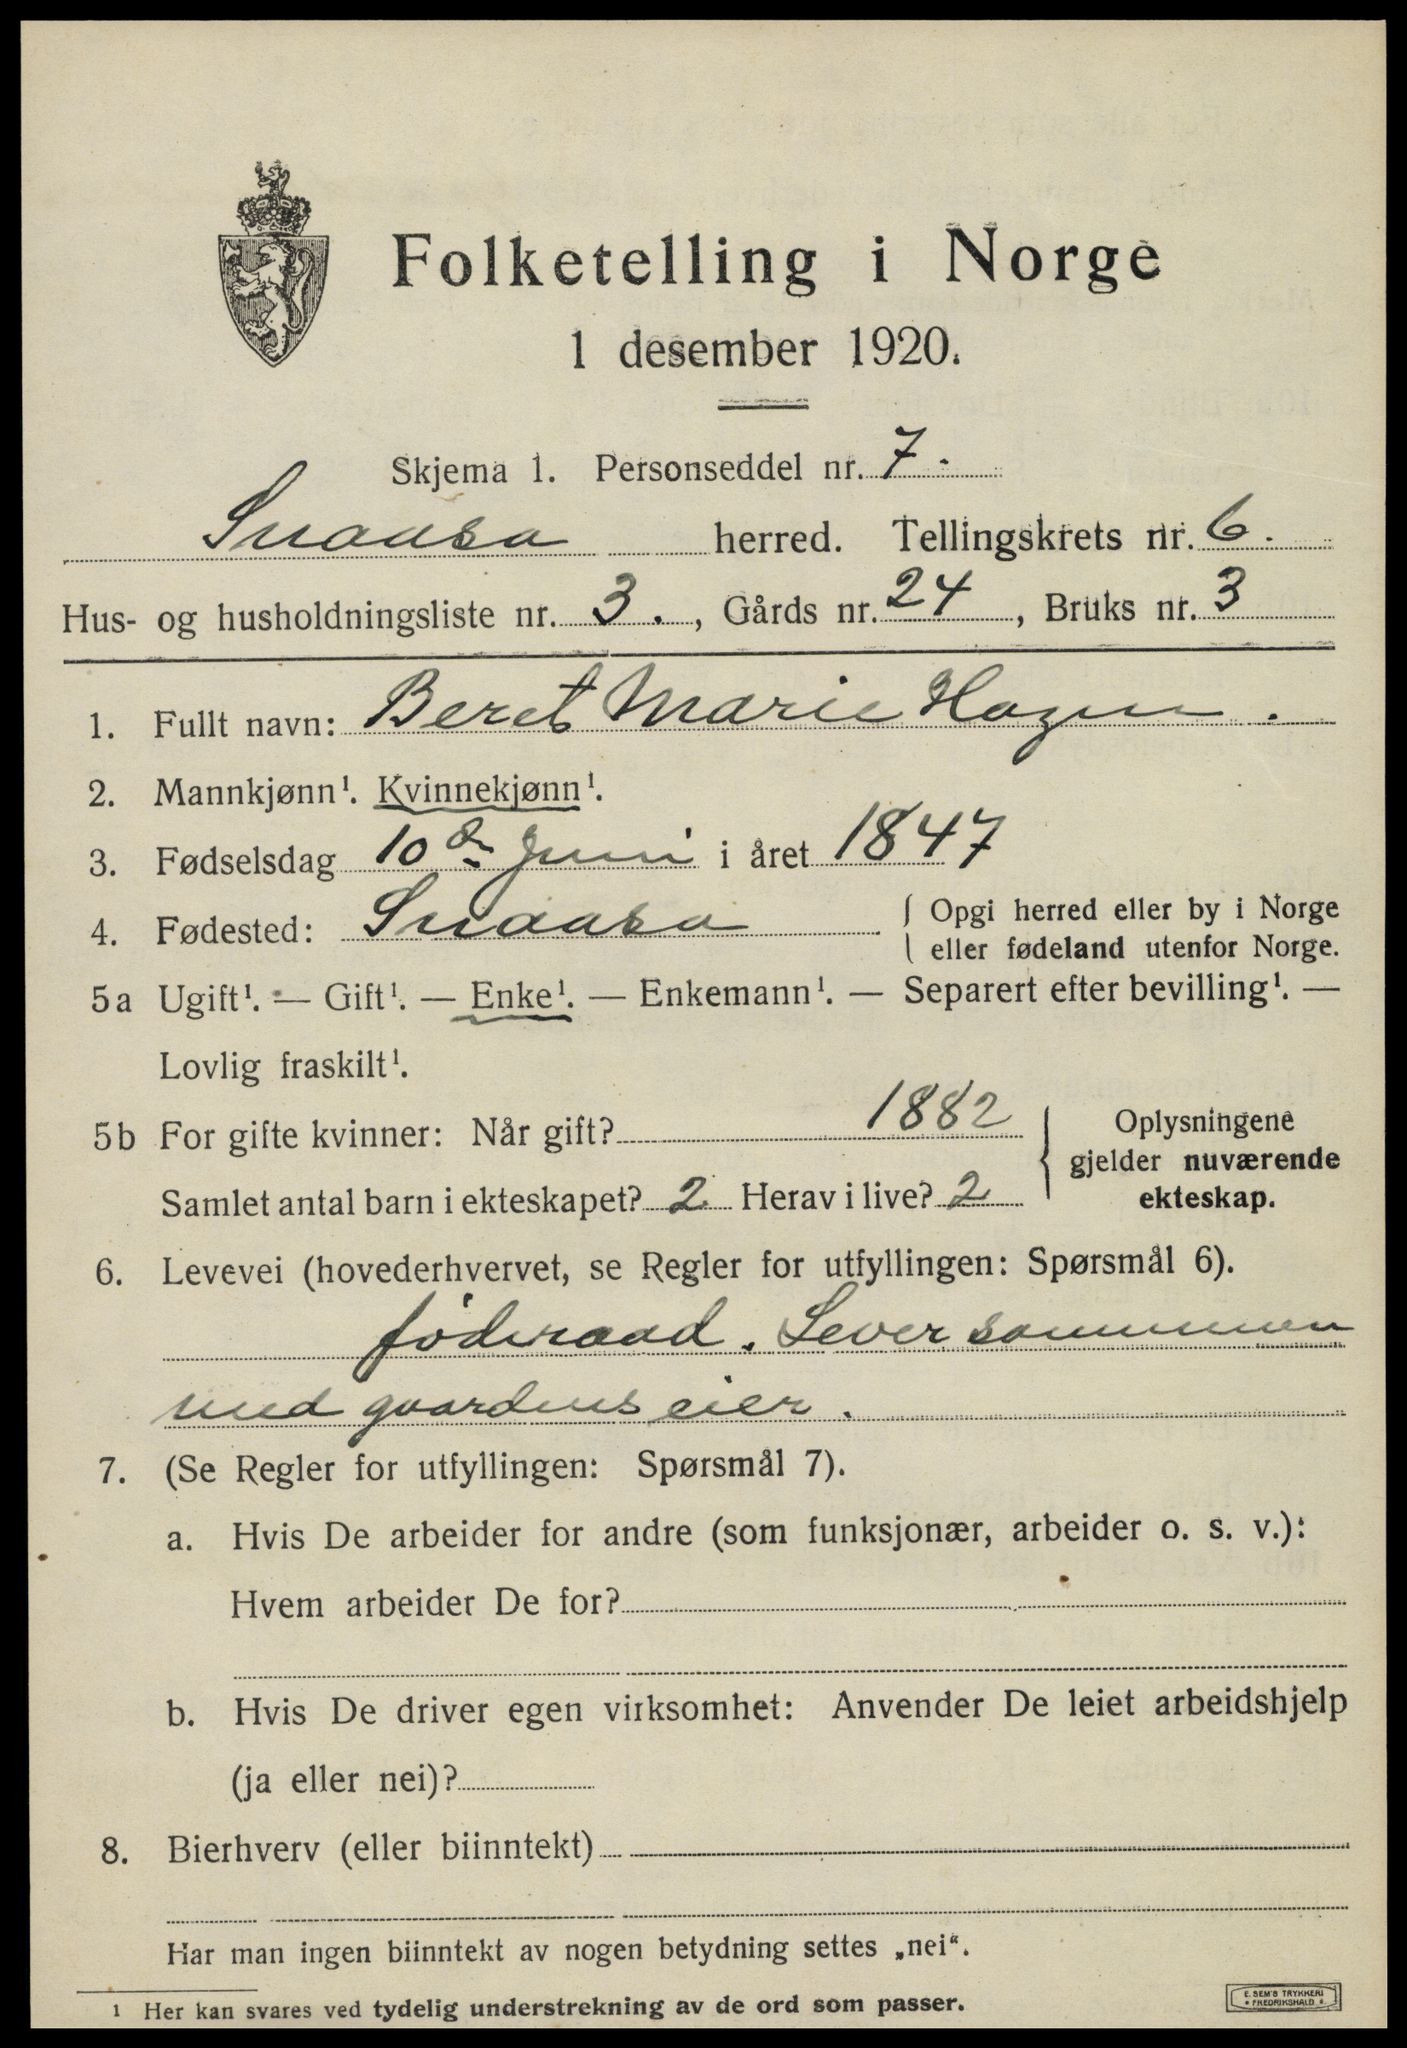 Folketelling i Norge
1 desember 1920.
Skjema 1. Personseddel nr. 7.
Snaasa herred. Tellingskrets nr. 6.
Hus- og husholdningsliste nr. 3., Gårds nr. 24, Bruks nr. 3
1. Fullt navn: Beret Marie Hagen.
2. Mannkjønn¹. Kvinnekjønn¹.
3. Fødselsdag 10de Juni i året 1847
4. Fødested: Snaasa { Opgi herred eller by i Norge
eller fødeland utenfor Norge.
5a Ugift¹. — Gift¹. — Enke¹. — Enkemann¹. — Separert efter bevilling¹. —
Lovlig fraskilt¹.
5b For gifte kvinner: Når gift? 1882
Samlet antal barn i ekteskapet? 2 Herav i live? 2
Oplysningene
gjelder nuværende
ekteskap.
6. Levevei (hovederhvervet, se Regler for utfyllingen: Spørsmål 6).
føderaad. Lever sammen
med gaardens eier.
7. (Se Regler for utfyllingen: Spørsmål 7).
a. Hvis De arbeider for andre (som funksjonær, arbeider o. s. v.):
Hvem arbeider De for?
b. Hvis De driver egen virksomhet: Anvender De leiet arbeidshjelp
(ja eller nei)?
8. Bierhverv (eller biinntekt)
Har man ingen biinntekt av nogen betydning settes „nei“.
1 Her kan svares ved tydelig understrekning av de ord som passer.
E. SEM'S TRYKKERI
• FREDRIKSHALD •